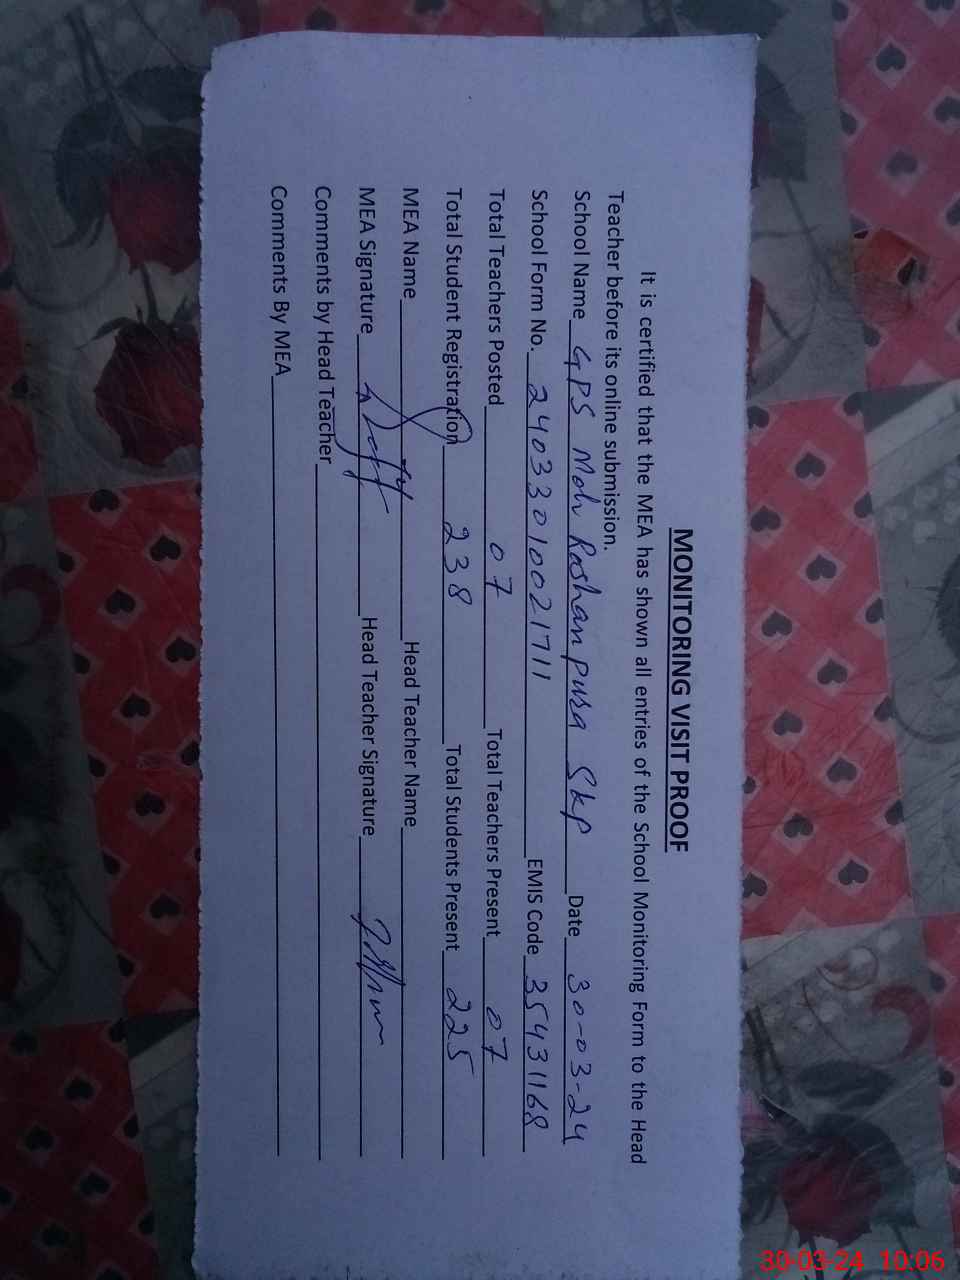 MONITORING VISIT PROOF
It is certified that the MEA has shown all entries of the School Monitoring Form to the Head
Teacher before its online submission.
School Name GPS Moh Roshanpura Skp Date 30-03-24
School Form No. 24033010021711 EMIS Code 35431168
Total Teachers Posted 07 Total Teachers Present 07
Total Student Registration 238 Total Students Present 225
MEA Name Head Teacher Name
MEA Signature Head Teacher Signature
Comments by Head Teacher
Comments By MEA
30-03-24 10:06